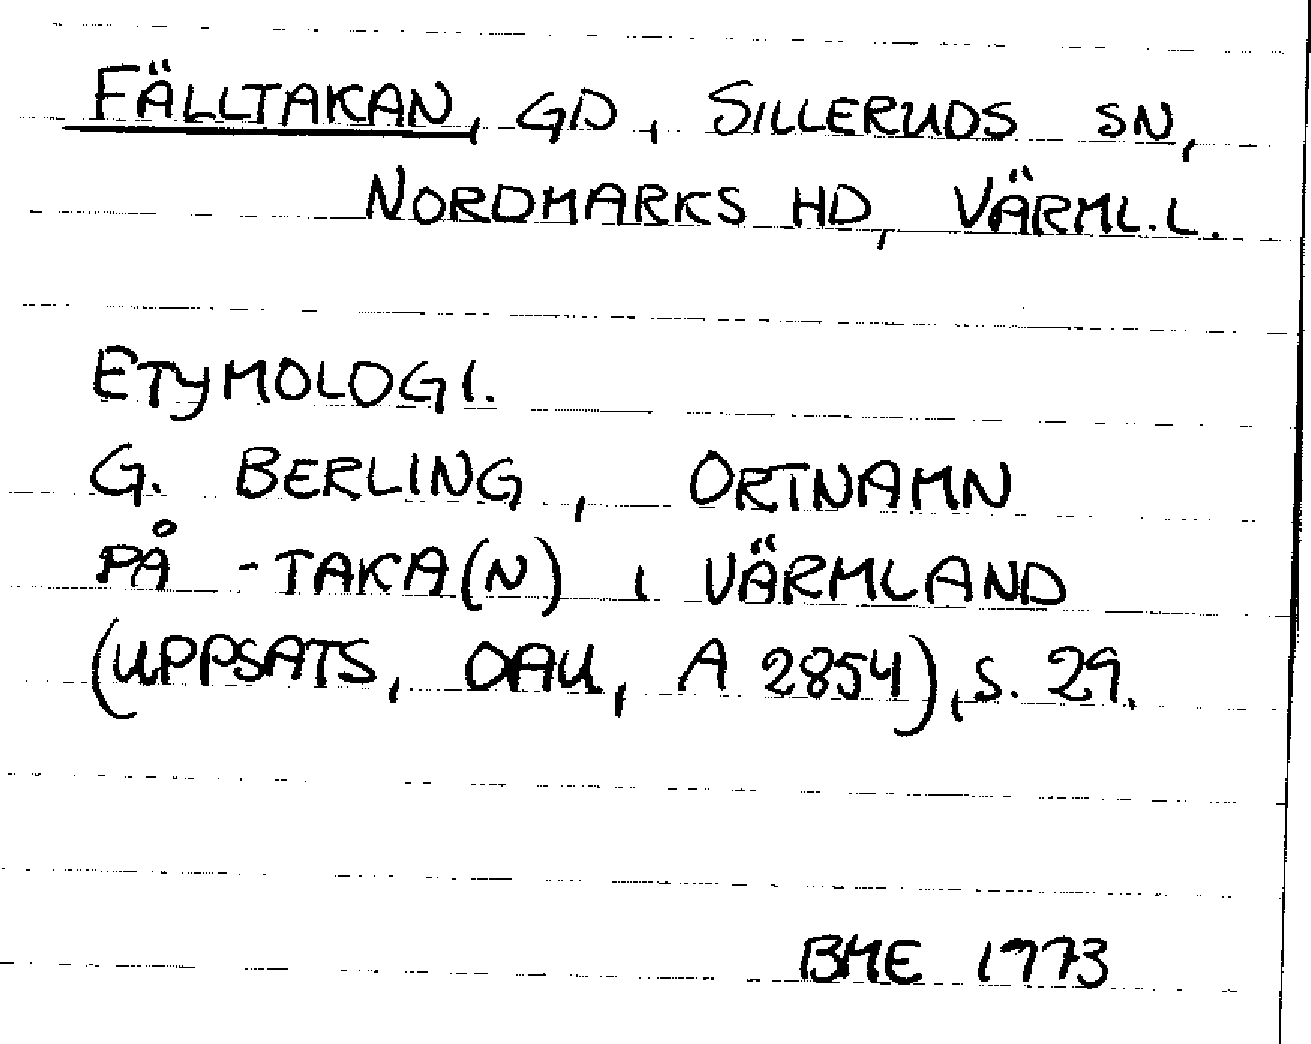 FÄLLTAKAN, GD, SILLERUDS SN,
NORDMARKS HD, VÄRML.L.
ETYMOLOGI.
G. BERLING, ORTNAMN
PÅ -TAKA(N) I VÄRMLAND
(UPPSATS, OAU, A 2854), S. 29.
BME 1973